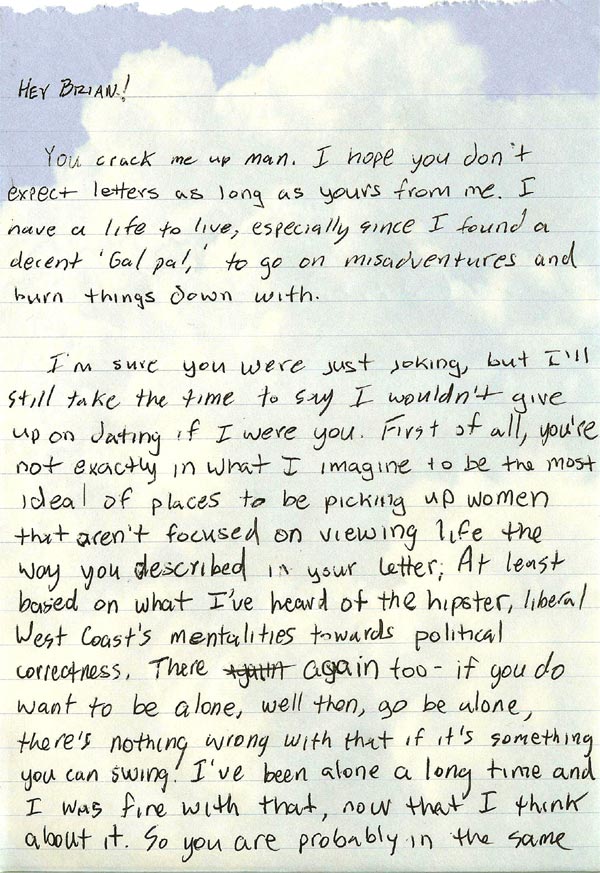 Hey Brian!
You crack me up man. I hope you don't
expect letters as long as yours from me. I
have a life to live, especially since I found a
decent 'Gal pal,' to go on misadventures and
burn things down with.
I'm sure you were just joking, but I'll
still take the time to say I wouldn't give
up on dating if I were you. First of all, you're
not exactly in what I imagine to be the most
ideal of places to be picking up women
that aren't focused on viewing life the
way you described in your letter; At least
based on what I've heard of the hipster, liberal
West Coast's mentalities towards political
correctness. There again too - if you do
want to be alone, well then, go be alone,
there's nothing wrong with that if it's something
you can swing! I've been alone a long time and
I was fine with that, now that I think
about it. So you are probably in the same